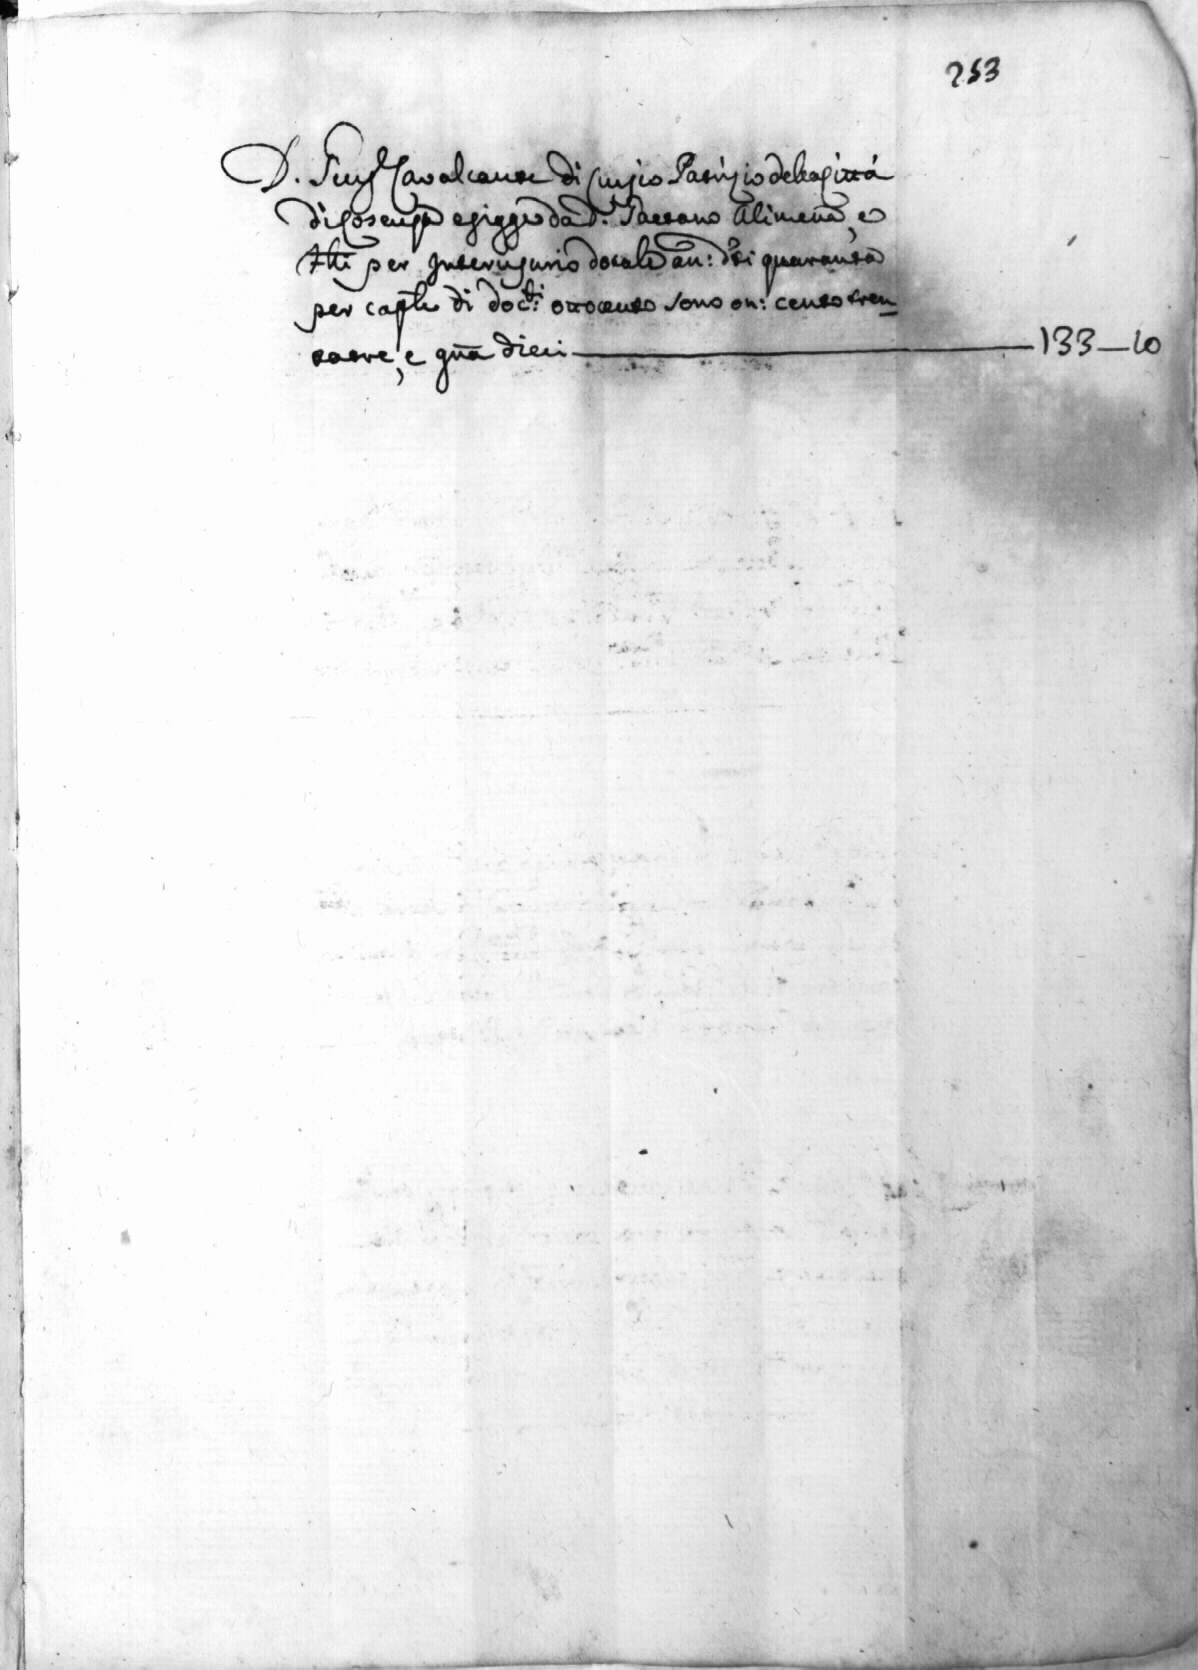 253
D. Cavalcante di Muzio Patrizio della Città
di Cosenza esigge da D. Gaetano Alimena, e
per Interusurio dotale an: d.ti quaranta
per cap.le di doc.ti ottocento sono on: cento tren
tatre, e gña dieci — 133—10